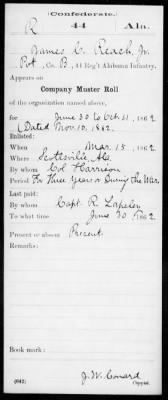 (Confederate.)
R 44 Ala.
James C. Reach, Jr.
Pvt, Co. B, 44 Reg't Alabama Infantry.
Appears on
Company Muster Roll
of the organization named above,
for June 30 to Oct 31, 1862
(Dated Nov. 10, 1862.
Enlisted:
When Mar. 15, 1862
Where Scottsville Ala.
By whom Col Harrison
Period For three years or During the War
Last paid:
By whom Capt. R. Lapsley
To what time June 30, 1862
Present or absent Present
Remarks:
Book mark:
(642) J. W. Conard
Copyist.